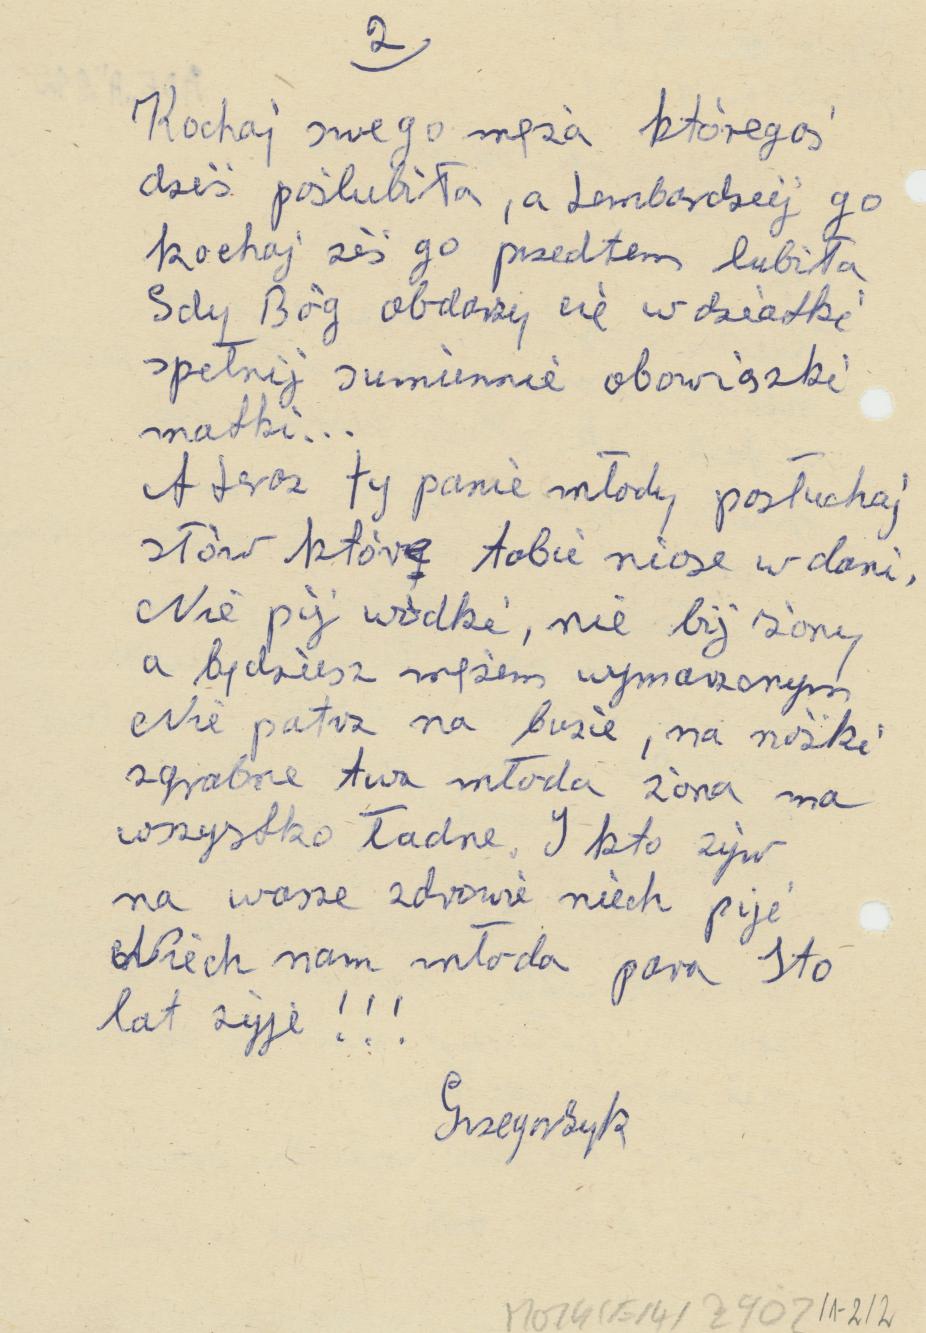 2
Kochaj swego męża któregoś
dziś poślubiła, a tembardziej go
kochaj żeś go przedtem lubiła
Gdy Bóg obdarzy cię w dziatki
spełnij sumiennie obowiązki
matki...
A teraz ty panie młody posłuchaj
słów które tobie niose w dani,
Nie pij wódki, nie bij żony
a będziesz mężem wymarzonym
Nie patrz na buzie, na nóżki
zgrabne twa młoda żona ma
wszystko ładne. I kto żyw
na wasze zdrowie niech pije
Niech nam młoda para sto
lat żyje!!!
Grzegorzyk
/1-2/2